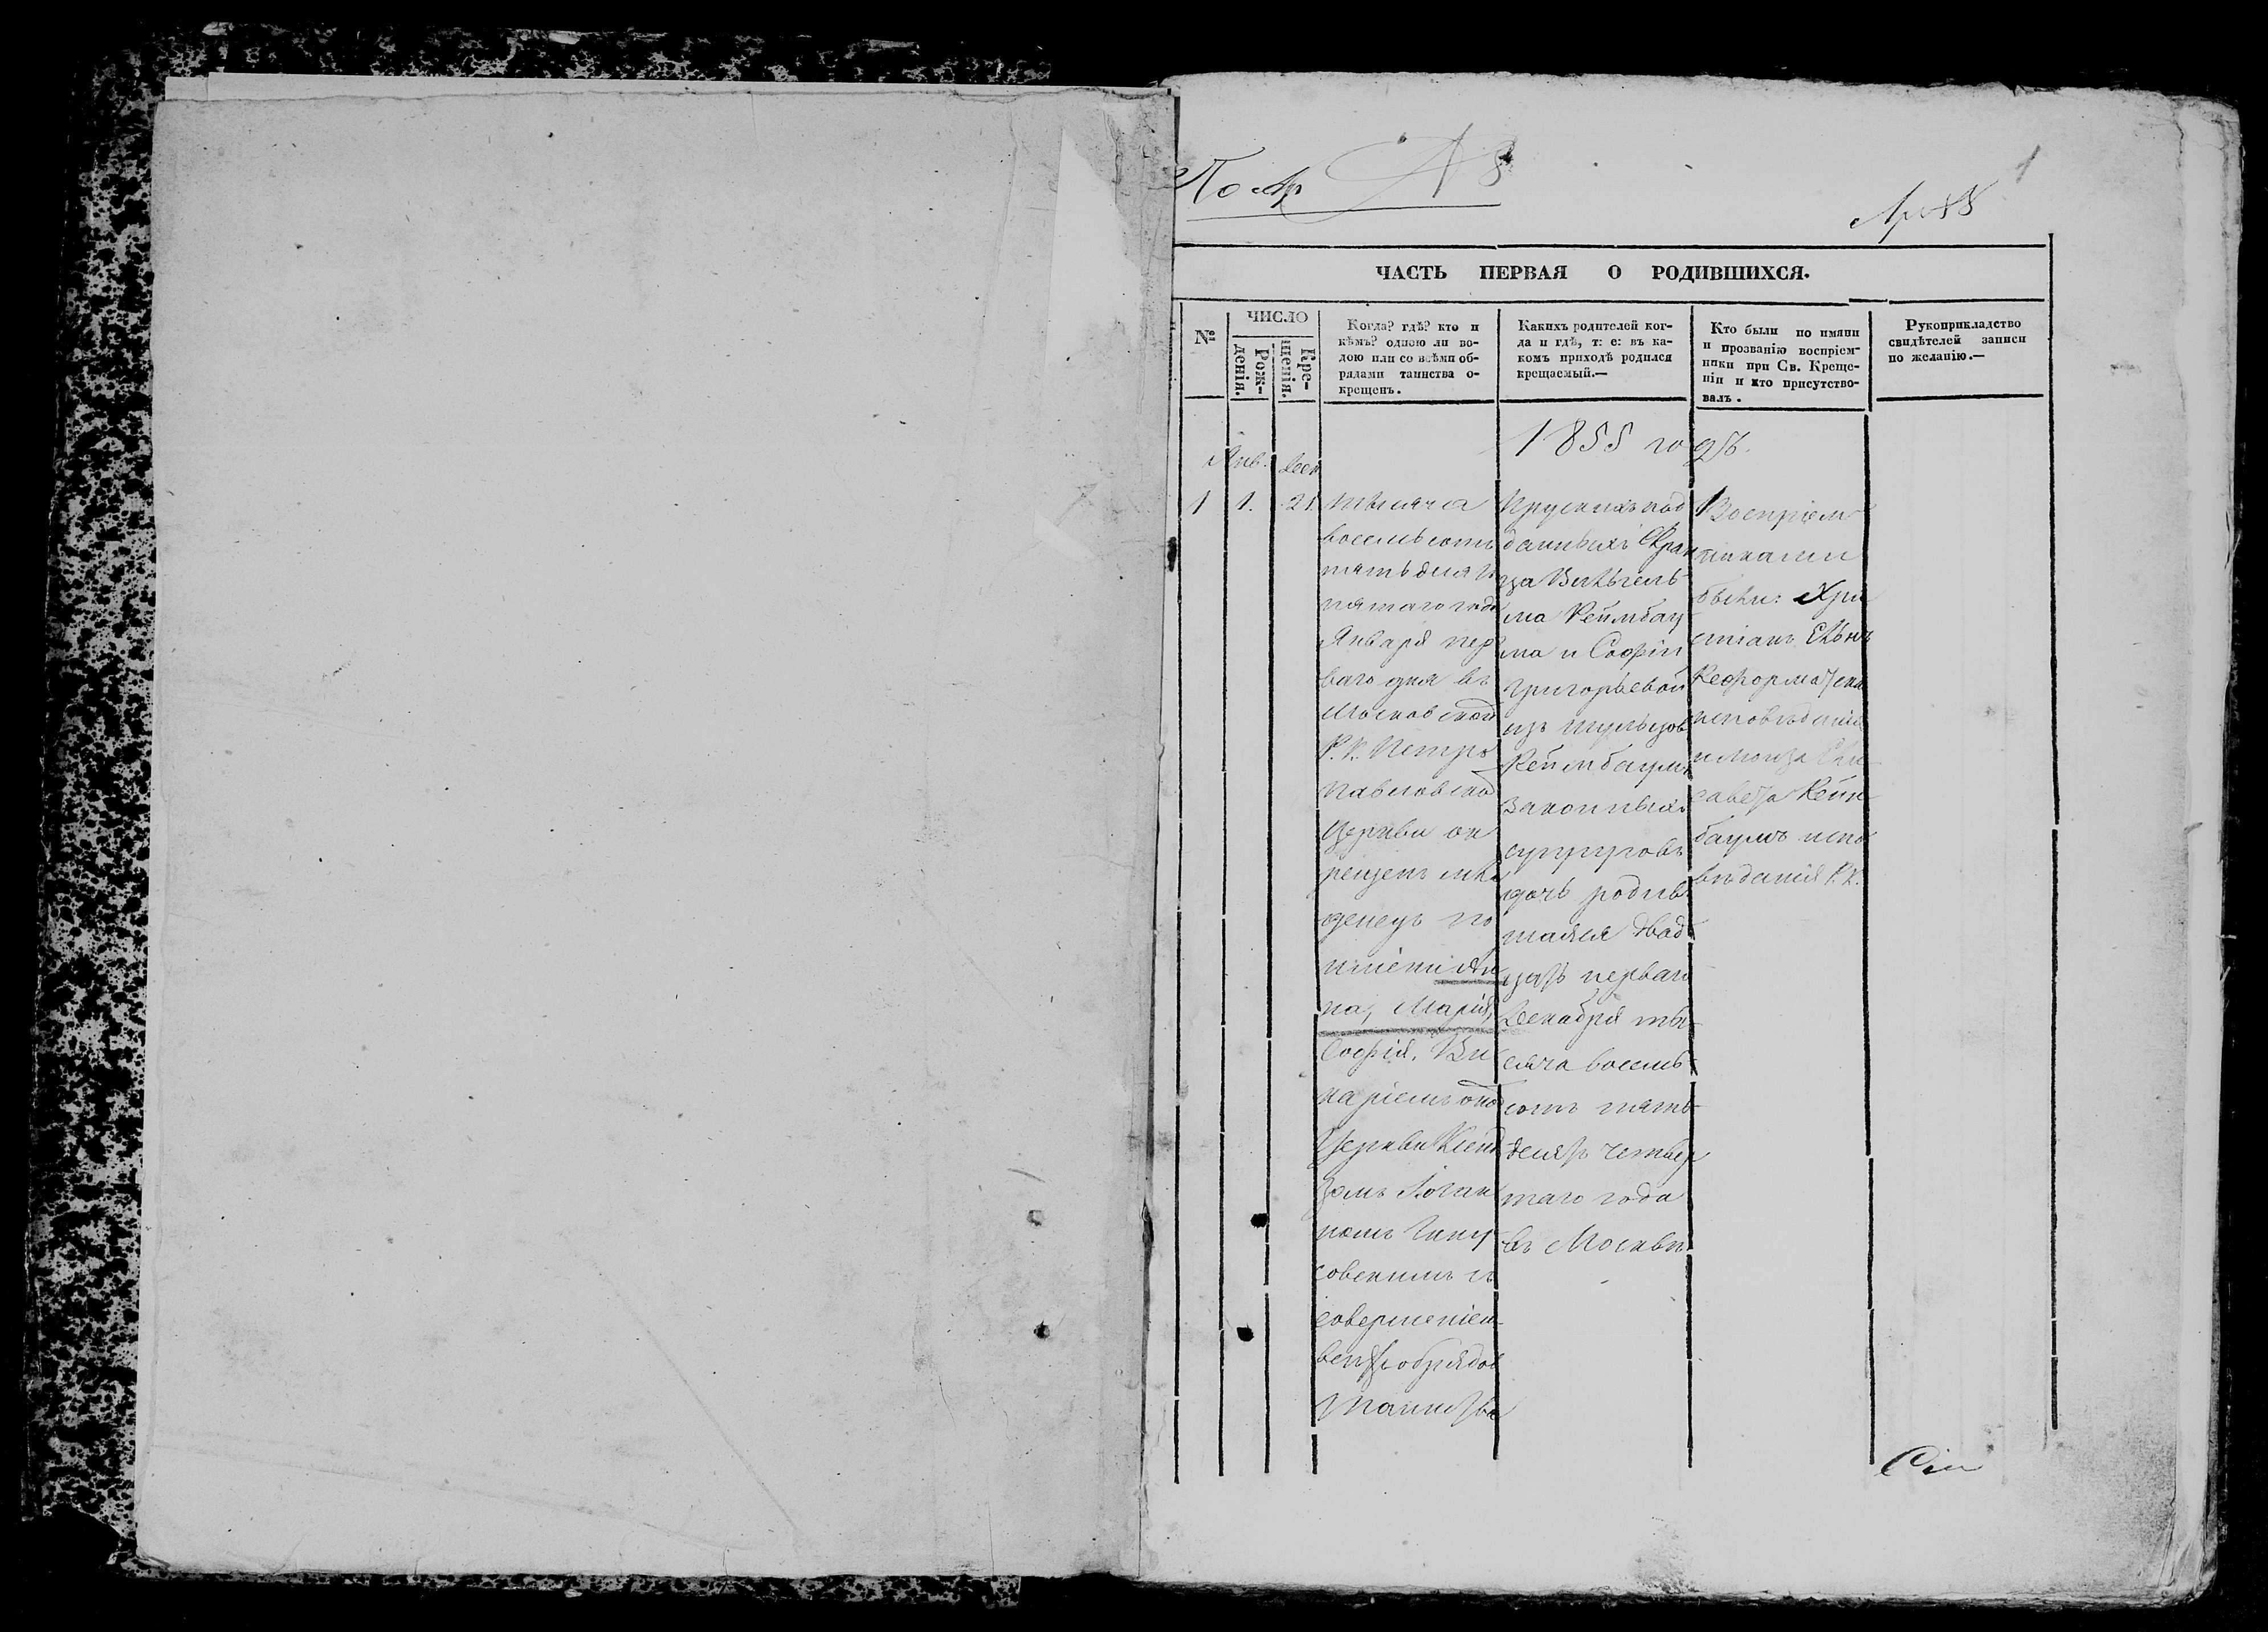 № 8
1
ЧАСТЬ ПЕРВАЯ О РОДИВШИХСЯ.
№
ЧИСЛО
Рож-
денія.
Кре-
щенія.
Когда? гдѣ? кто и
кѣмъ? одною ли во-
дою или со всѣми об-
рядами таинства о-
крещенъ.
Какихъ родителей ког-
да и гдѣ, т: е: въ ка-
комъ приходѣ родился
крещаемый.—
Кто были по имяни
и прозванію воспріем-
ники при Св. Креще-
ніи и кто присутство-
валъ.
Рукоприкладство
свидѣтелей записи
по желанію.—
1855 годъ.
Янв. Дек
1
1.
21.
тысяча
восемьсотъ
пятьдесятъ
пятаго года
Января пер
ваго дня въ
Московской
Р. К. Петро
павловской
Церкви ок
рещенъ мла
денецъ по
имени Ан
на, Марія,
Софія, Ви
каріемъ оной
Церкви Ксенд
зомъ Іоан
номъ
совскимъ съ
совершеніемъ
всѣхъ обрядов
Таинства
Прускихъ под
данныхъ Фран
ца Вильгель
ма Реймбау
ма и Софіи
Григорьевой
изъ Шульцов
Реймбаумъ
законныхъ
супруговъ
дочь родив
шаяся двад
цать перваго
Декабря ты-
сяча восемь
сотъ пять-
десятъ четвер
таго года
въ Москвѣ.
Воспріем
никами
были: Хри
стіанъ
Реформатска
исповѣданія
и Луиза Ели
савета Рейм
баумъ испо
вѣданія Р. К.